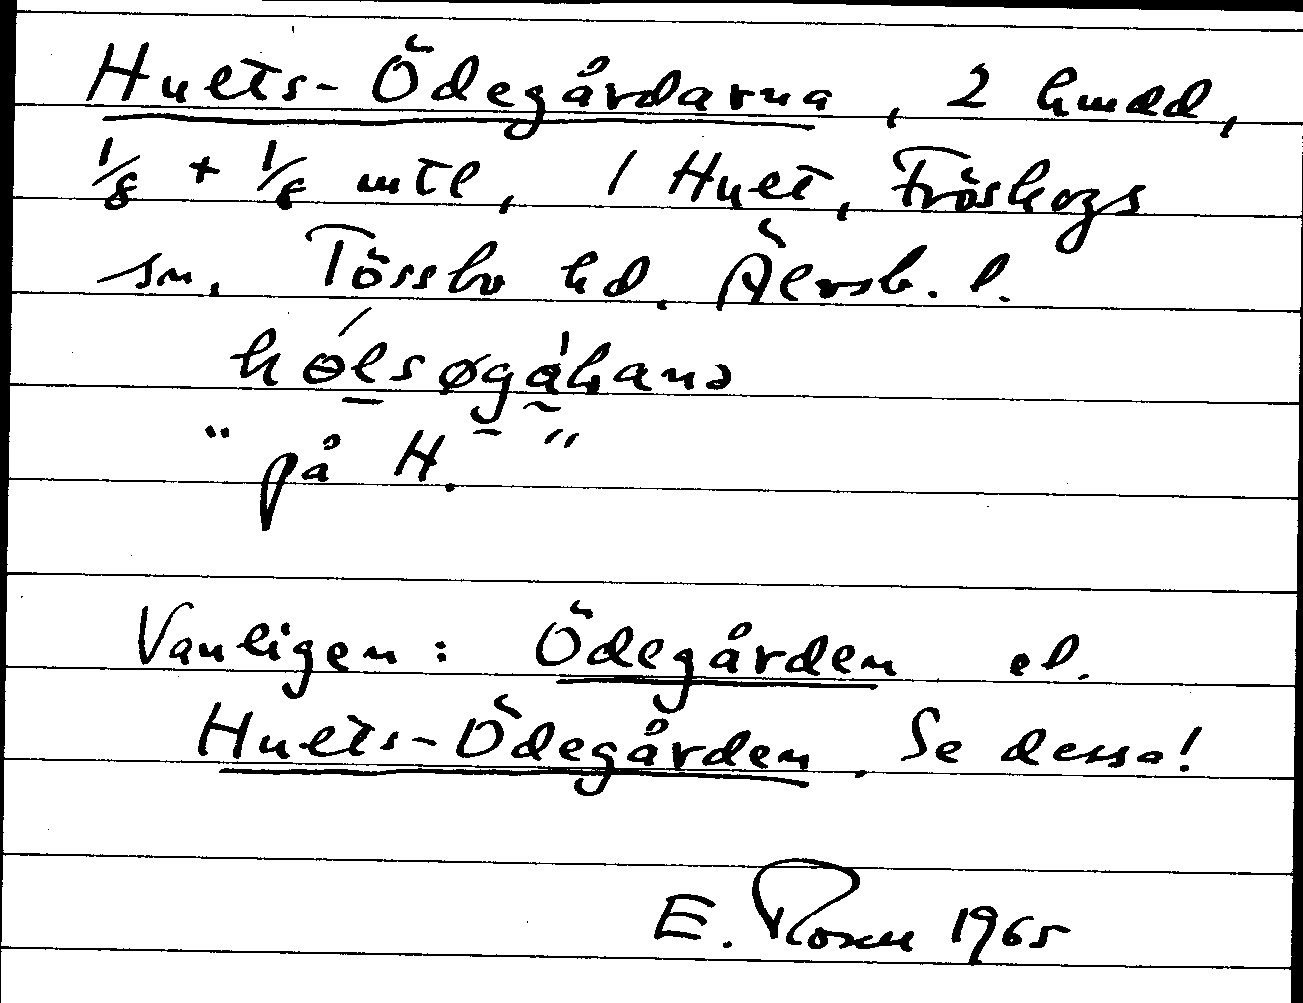 Hults-Ödegårdarna, 2 hmdd,
1/8 + 1/8 mtl, 1 Hult, Fröskogs
sn. Tössbo hd. Älvsb. l.
hөlsøgåhana
"på H."
Vanligen: Ödegården el.
Hults-Ödegården. Se dessa!
E. Rosen 1965